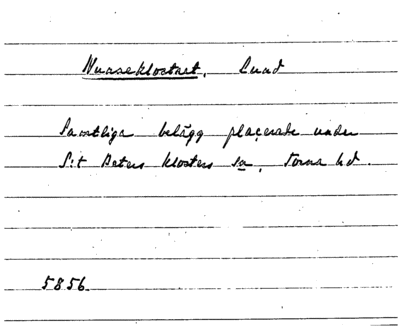 Nunneklostret, Lund
Samtliga belägg placerade under
S:t Peters klosters sn, Torna hd.
5856